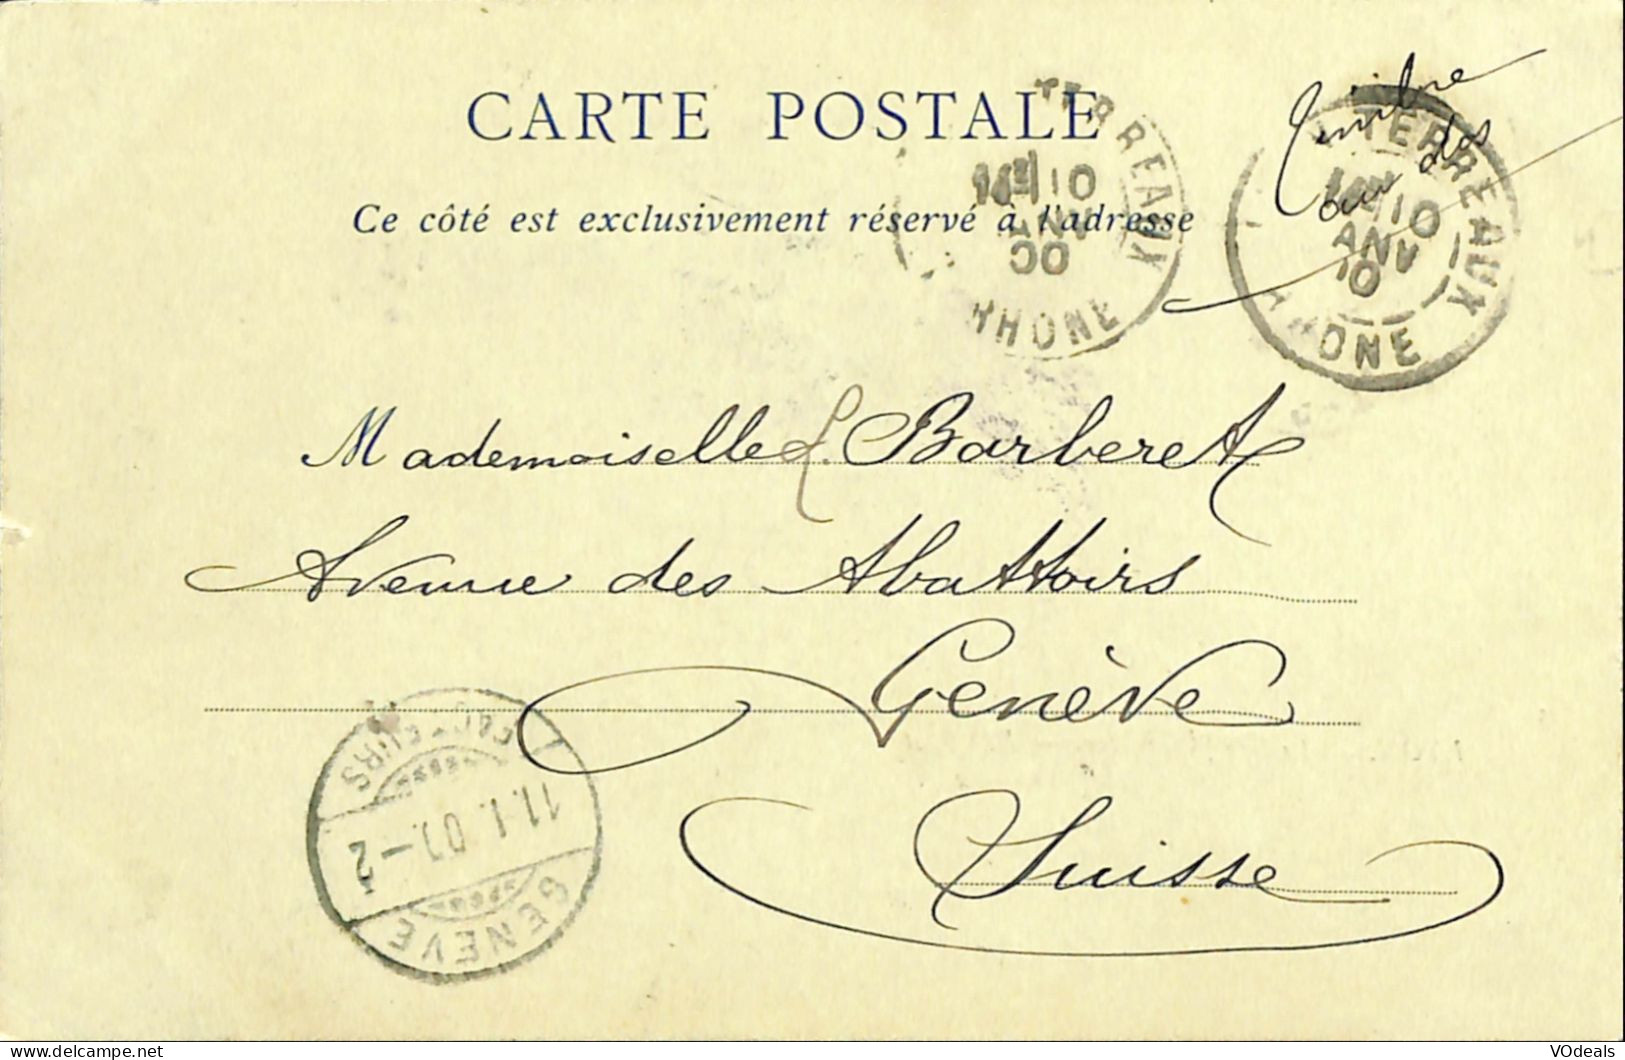 CARTE POSTALE
Ce côté est exclusivement réservé à l'adresse
TERREAUX
10
RHONE
Timbre
au dos
TERREAUX
10
ANV
RHONE
Mademoiselle L. Barberet
Avenue des Abattoirs
Genève
Suisse
GENÈVE
VOdeals